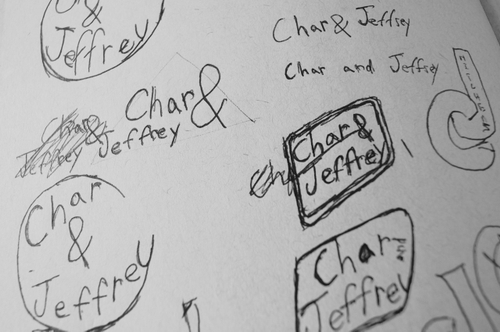 &
Jeffrey
Char & Jeffrey
Char and Jeffrey
Char &
Jeffrey
Char &
Jeffrey
Char &
Jeffrey
Char
&
Jeffrey
Char
and
Jeffrey